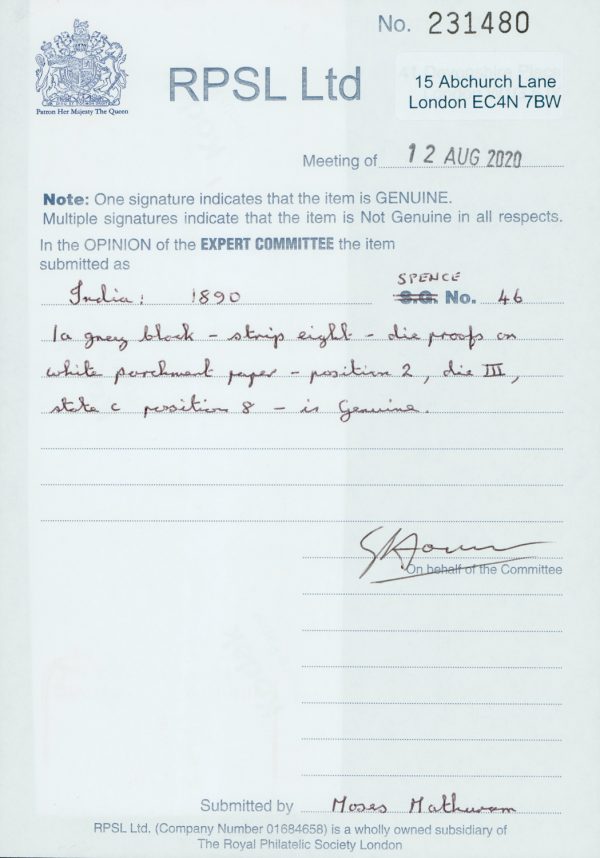 No. 231480
Patron Her Majesty The Queen
RPSL Ltd
15 Abchurch Lane
London EC4N 7BW
Meeting of 12 AUG 2020
Note: One signature indicates that the item is GENUINE.
Multiple signatures indicate that the item is Not Genuine in all respects.
In the OPINION of the EXPERT COMMITTEE the item
submitted as
SPENCE
India: 1890 S.G. No. 46
1a grey block - strip eight - die proofs on
white parchment paper - position 2, die III,
state c position 8 - is Genuine.
On behalf of the Committee
Submitted by Moses Mathuram
RPSL Ltd. (Company Number 01684658) is a wholly owned subsidiary of
The Royal Philatelic Society London